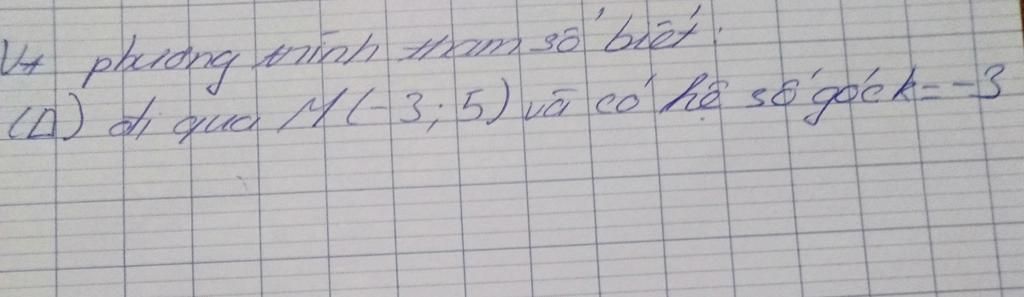 Vt phương trình tham số biết:
(Δ) đi qua M(-3; 5) và có hệ số góc k = -3